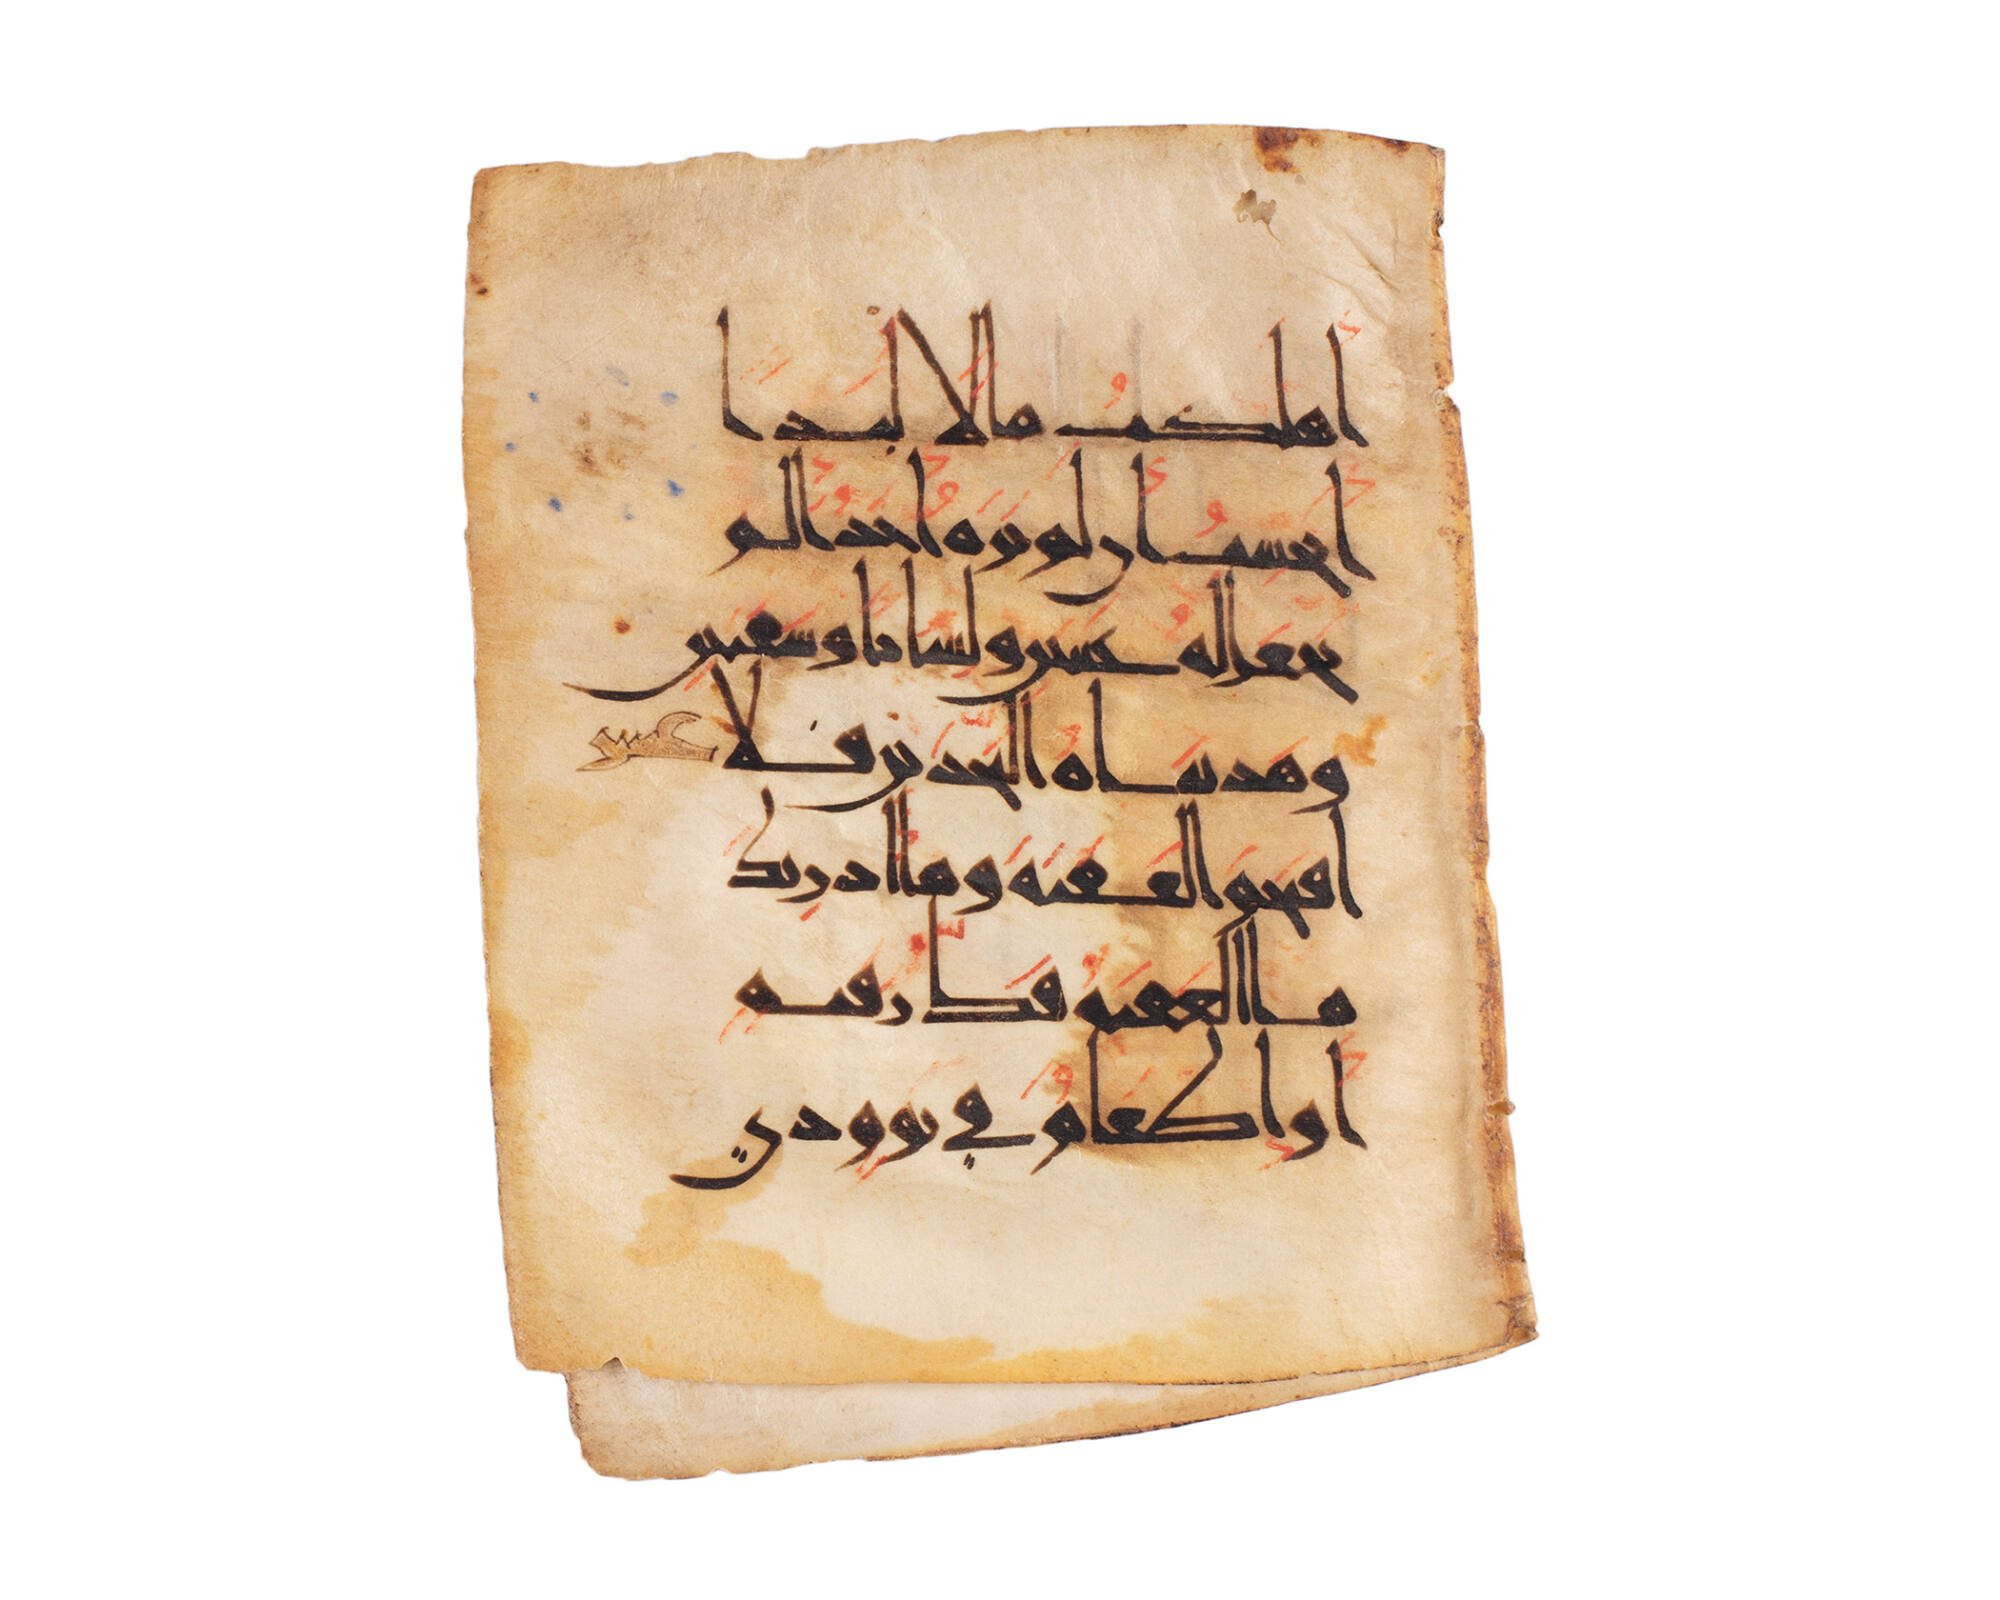 اهلكت مالا لبدا
ايحسب ان لم يره احد الم
نجعل له عينين ولسانا وشفتين
وهديناه النجدين فلا
اقتحم العقبة وما ادريك
ما العقبة فك رقبة
او اطعام في يوم ذي